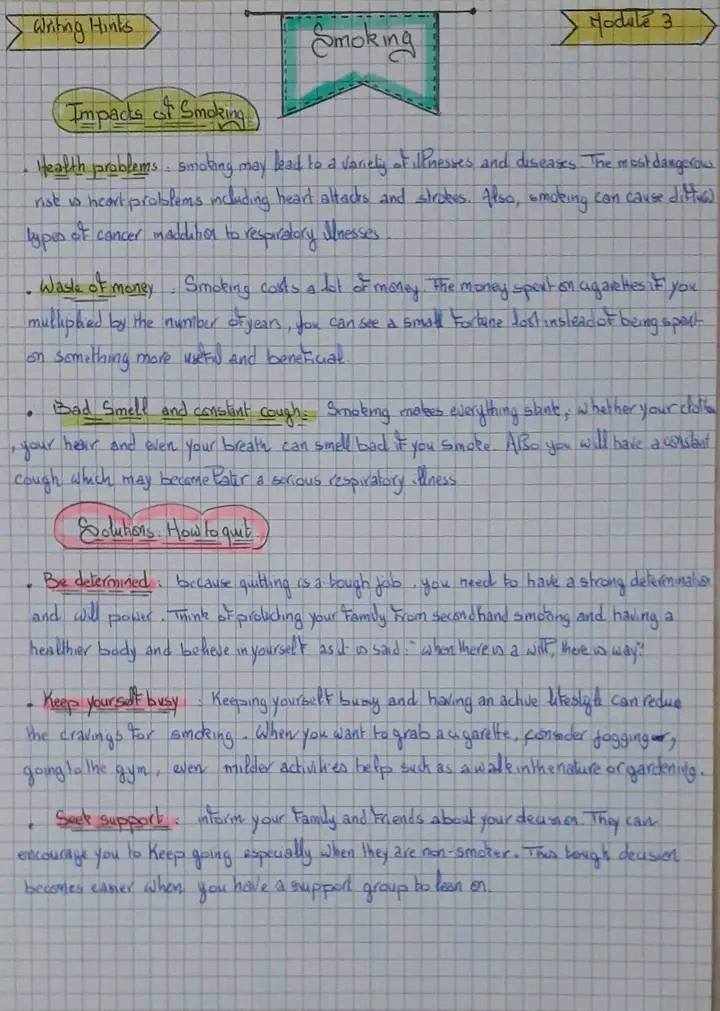 Writing Hints
Smoking
Module 3
Impacts of Smoking
. Health problems : smoking may lead to a variety of illnesses and diseases. The most dangerous
risk is heart problems including heart attacks and strokes. Also, smoking can cause
types of cancer in addition to respiratory illnesses.
. Waste of money : Smoking costs a lot of money. The money spent on cigarettes if you
multiplied by the number of years, you can see a small fortune lost instead of being spent
on something more useful and beneficial.
. Bad Smell and constant cough : Smoking makes everything stink, whether your
, your hair and even your breath can smell bad if you smoke. Also you will have a constant
cough which may become later a serious respiratory illness
Solutions : How to quit
. Be determined : because quitting is a tough job, you need to have a strong determination
and will power. Think of protecting your family from secondhand smoking and having a
healthier body and believe in yourself as it is said : "when there is a will, there is way"
. Keep yourself busy : Keeping yourself busy and having an active lifestyle can reduce
the cravings for smoking. When you want to grab a cigarette, consider jogging,
going to the gym, even milder activities help such as a walk in the nature or gardening.
. Seek support : inform your family and friends about your decision. They can
encourage you to keep going especially when they are non-smoker. This tough decision
becomes easier when you have a support group to lean on.